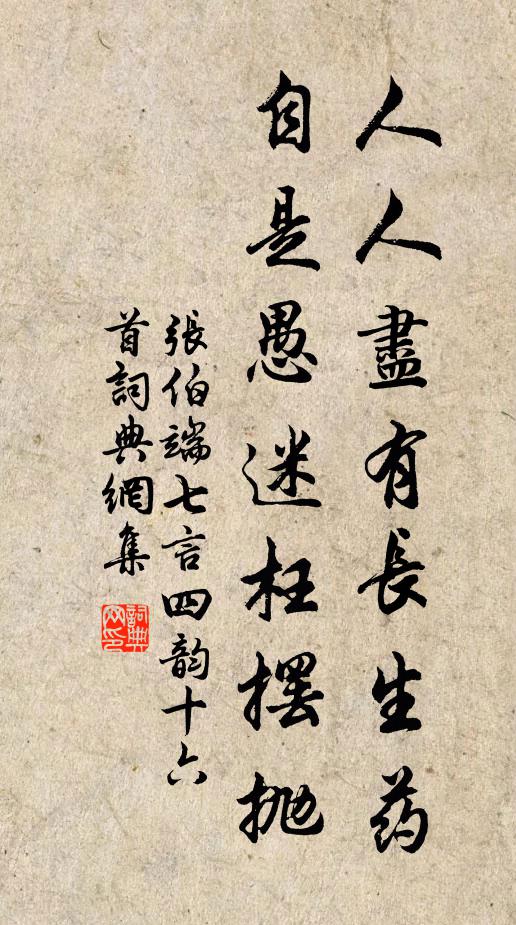 人人盡有長生药
自是愚迷枉擺抛
張伯端七言四韵十六
首詞典網集
詞典网印